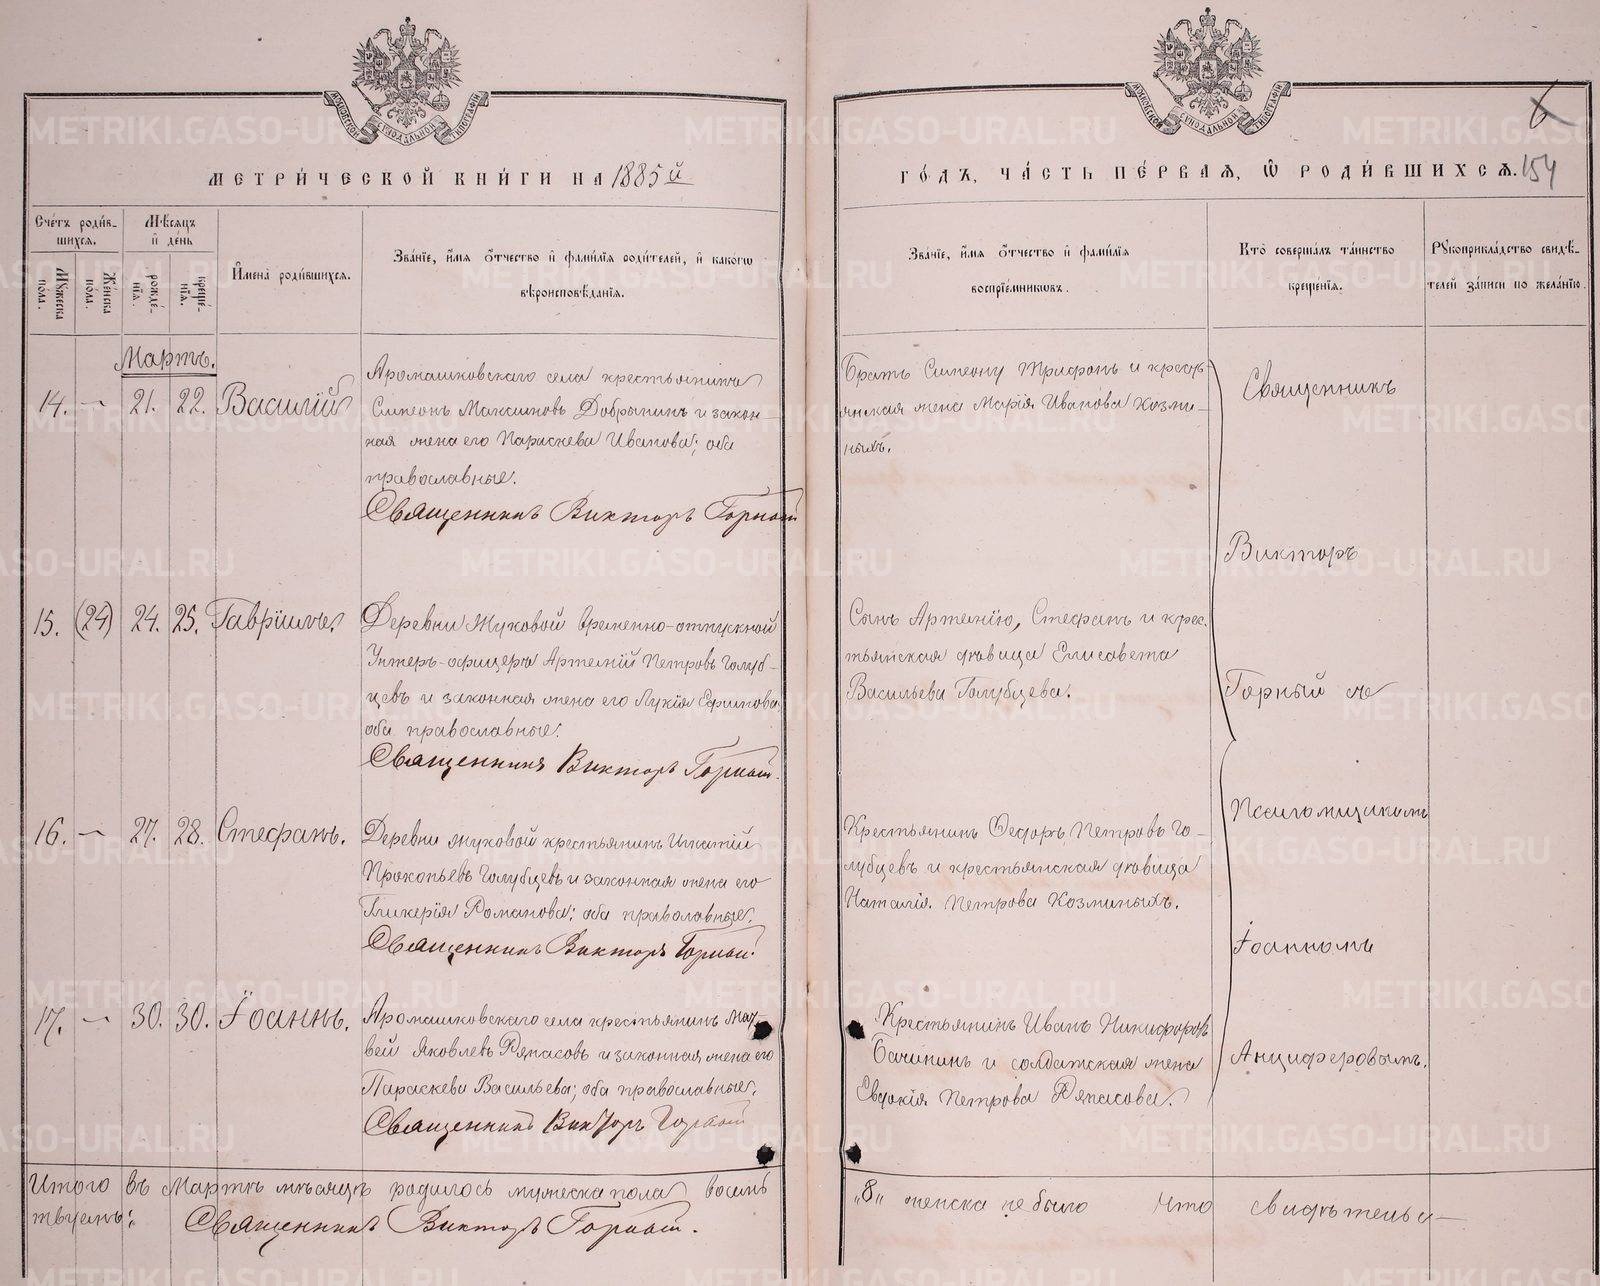 МЕТРИЧЕСКОЙ КНИГИ НА 1885й
ГОДЪ, ЧАСТЬ ПЕРВАЯ, Ѡ РОДИВШИХСЯ.
6
154
Счетъ родившихся.
Мужеска пола.
Женска пола.
Мѣсяцъ и день
рожденія.
крещенія.
Имена родившихся.
Званіе, имя отчество и фамилія родителей, и какого
вѣроисповѣданія.
Званіе, имя отчество и фамилія
воспріемниковъ.
Кто совершалъ таинство
крещенія.
Рукоприкладство свидѣ-
телей записи по желанію.
Мартъ.
14. — 21. 22. Василій
Аромашковскаго села крестьянинъ
Симеонъ Максимовъ Добрынинъ и закон-
ная жена его Параскева Иванова; оба
православные.
Священникъ Викторъ Горный
Братъ Симеону Трифонъ и кресть-
янская жена Марія Иванова Козми-
ныхъ.
15. (24) 24. 25. Гавріилъ.
Деревни Жуковой временно-отпускной
Унтеръ-офицеръ Артемій Петровъ Голуб-
цевъ и законная жена его Лукія Ефимова
оба православные.
Священникъ Викторъ Горный.
Сынъ Артемію, Стефанъ и крес-
тьянская дѣвица Елисавета
Васильева Голубцева.
16. — 27. 28. Стефанъ.
Деревни Жуковой крестьянинъ Игнатій
Прокопьевъ Голубцевъ и законная жена его
Гликерія Романова; оба православные.
Священникъ Викторъ Горный.
Крестьянинъ Федоръ Петровъ Го-
лубцевъ и крестьянская дѣвица
Наталія Петрова Козминыхъ.
17. — 30. 30. Іоаннъ.
Аромашковскаго села крестьянинъ Мат-
вей Яковлевъ Ряпасовъ и законная жена его
Параскева Васильева; оба православные.
Священникъ Викторъ Горный
Крестьянинъ Иванъ Никифоровъ
Бачининъ и солдатская жена
Евдокія Петрова Ряпасова.
Священникъ
Викторъ
Горный съ
Псаломщикомъ
Іоанномъ
Анциферовымъ.
Итого въ Мартѣ мѣсяцѣ родилось мужеска пола восемь
„8„ женска не было Что свидѣтельс-
твуемъ:
Священникъ Викторъ Горный.
METRIKI.GASO-URAL.RU